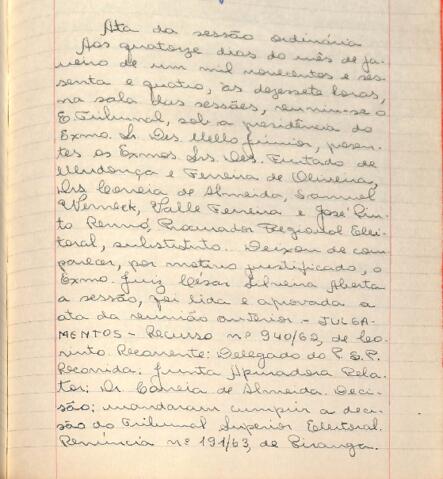 Ata da sessão ordinária
Aos quatorze dias do mês de ja-
neiro de um mil novecentos e ses-
senta e quatro, às dezessete horas,
na sala das sessões, reuniu-se o
E. Tribunal, sob a presidência do
Exmo. Sr. Des. Mello Júnior, presen-
tes os Exmos. Srs. Des. Furtado de
Mendonça e Ferreira de Oliveira,
Drs. Correia de Almeida, Samuel
Werneck, Valle Ferreira e José Pin-
to Rennó, Procurador Regional Elei-
toral, substituto. Deixou de com-
parecer, por motivo justificado, o
Exmo. Juiz César Silveira. Aberta
a sessão, foi lida e aprovada a
ata da reunião anterior. - JULGA-
MENTOS - Recurso nº 940/63, de Co-
rinto. Recorrente: Delegado do P.S.P.
Recorrida: Junta Apuradora. Rela-
tor: Dr. Correia de Almeida. Deci-
são: mandaram cumprir a deci-
são do Tribunal Superior Eleitoral.
Renúncia nº 191/63, de Piranga.